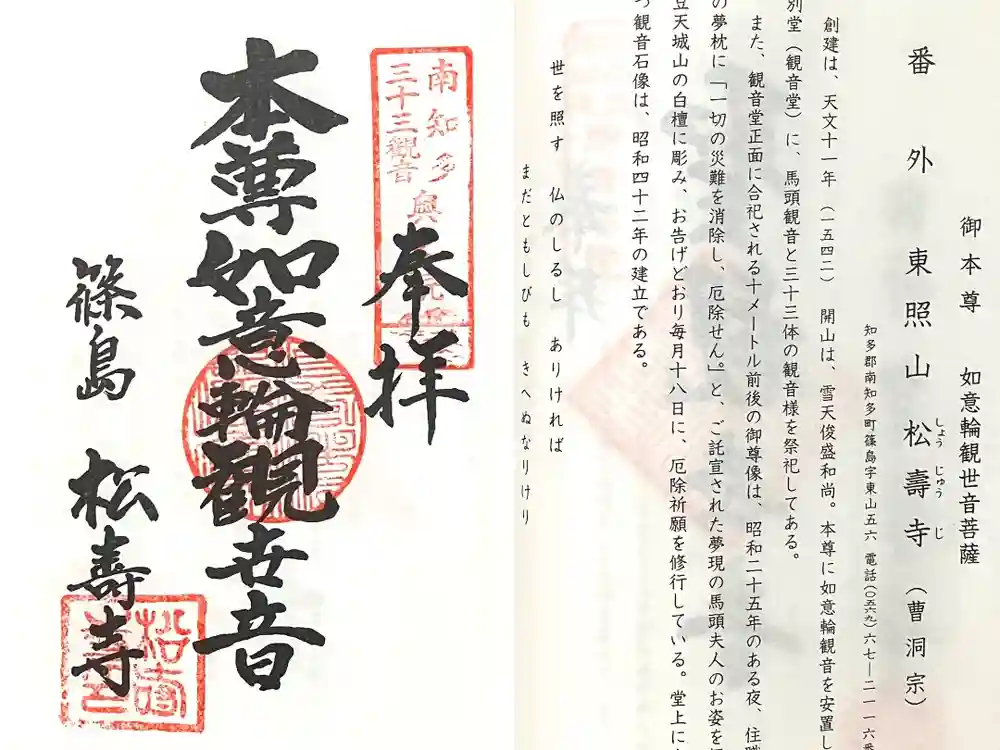 御本尊 如意輪観世音菩薩
番外 東照山 松壽寺(曹洞宗)
しょう じゅう じ
知多郡南知多町篠島字東山五六 電話(〇五六九)六七―二一一六番
創建は、天文十一年(一五四二) 開山は、雪天俊盛和尚。本尊に如意輪観音を安置し
別堂(観音堂)に、馬頭観音と三十三体の観音様を祭祀してある。
また、観音堂正面に合祀される十メートル前後の御尊像は、昭和二十五年のある夜、住職
の夢枕に「一切の災難を消除し、厄除せん。」と、ご託宣された夢現の馬頭夫人のお姿を
豆天城山の白檀に彫み、お告げどおり毎月十八日に、厄除祈願を修行している。堂上に
つ観音石像は、昭和四十二年の建立である。
世を照す 仏のしるし ありければ
まだともしびも きへぬなりけり
南知多
三十三観音
奉拝
本尊如意輪観世音
篠島 松壽寺